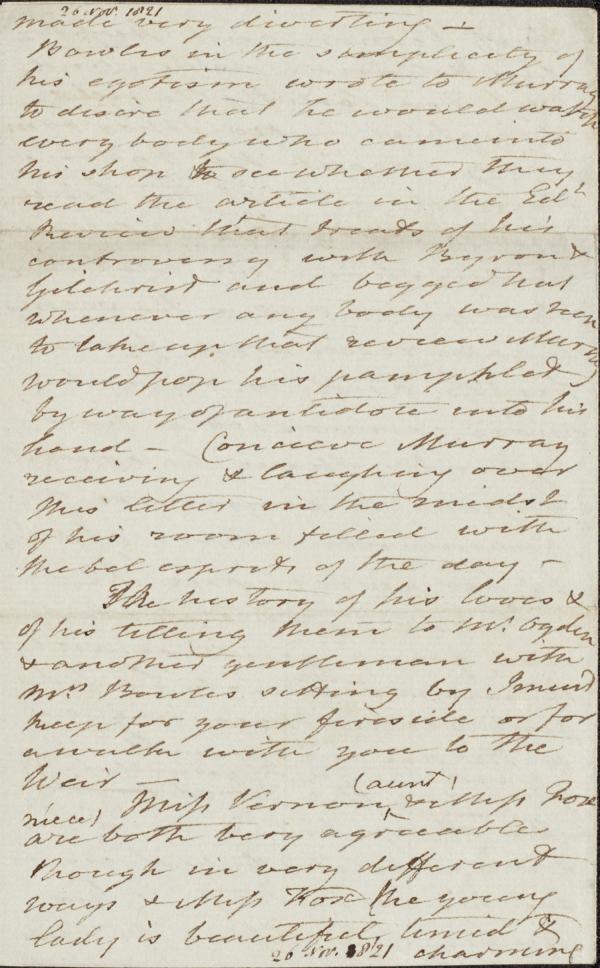 26 Nov. 1821
made very diverting –
Bowles in the simplicity of
his egotism wrote to Murray
to desire that he would watch
every body who came into
his shop to see whether they
read the article in the Edh
Review that treats of his
controversy with Byron &
Gilchrist and begged that
whenever any body was seen
to take up that review Murray
would pop his pamphlet
by way of antidote into his
hand – Conceive Murray
receiving & laughing over
this letter in the midst
of his room filled with
the bel esprits of the day –
The history of his loves &
of his telling them to Mr. Ogden
& another gentleman with
Mrs Bowles sitting by I must
keep for your fireside or for
a walk with you to the
Weir –
Miss Vernon (aunt) & Miss Fox
niece)
are both very agreeable
though in very different
ways & Miss Fox (the young
lady is beautiful, timid &
charming
26 Nov. 1821